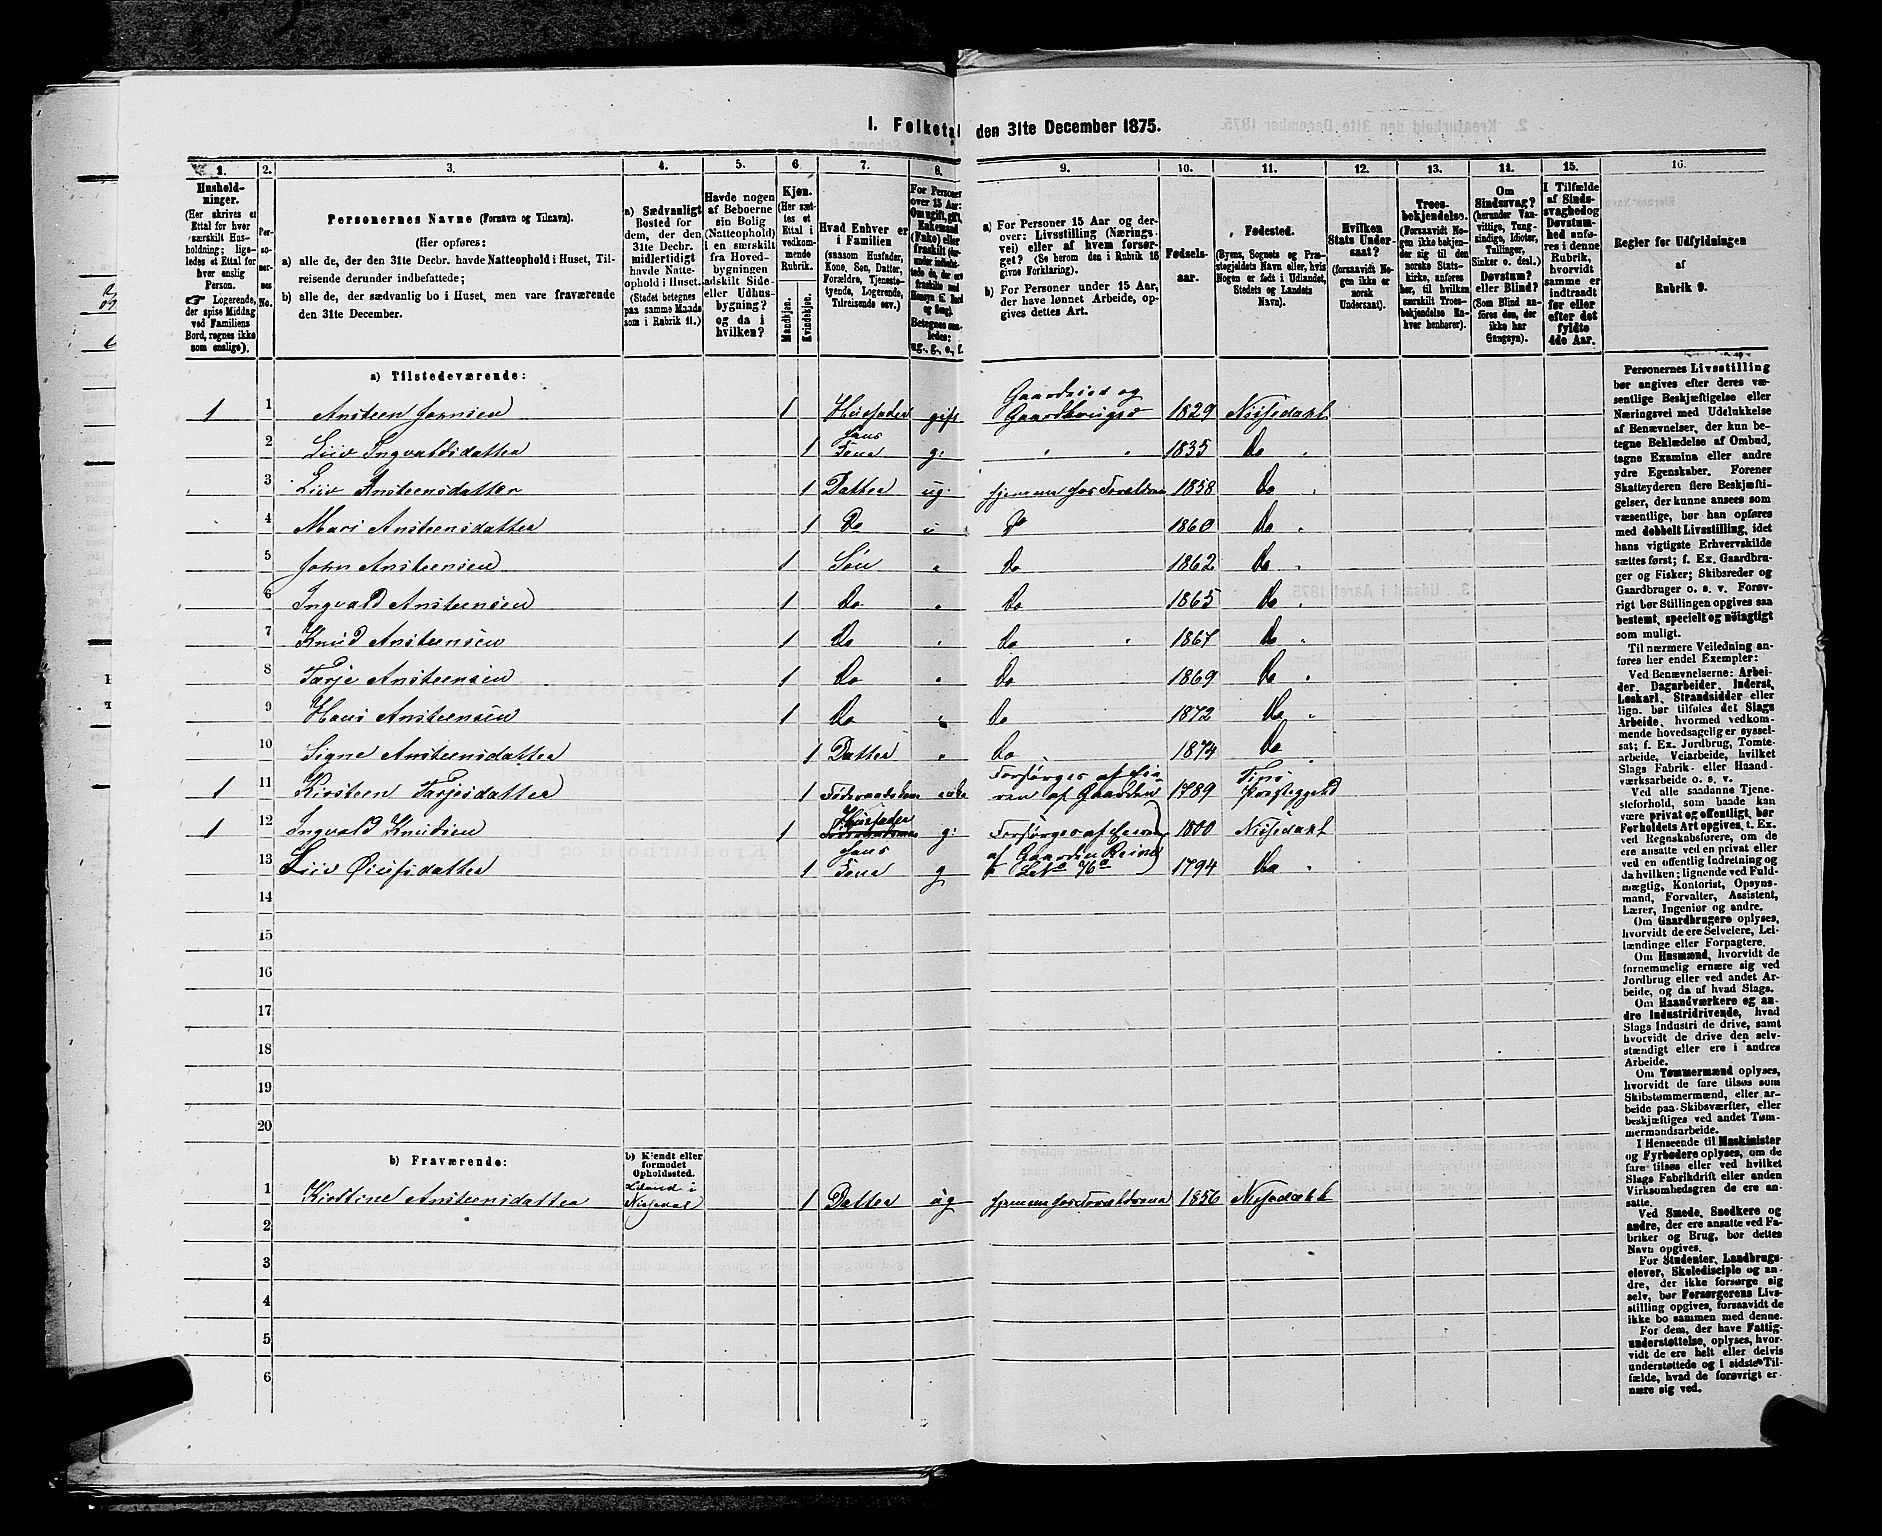 I. Folketal den 31te December 1875.
1. 2. 3. 4. 5. 6. 7. 8. 9. 10. 11. 12. 13. 14. 15. 16.
Hushold-
ninger.
(Her skrives et
Ettal for hver
særskilt Hus-
holdning; lige-
ledes et Ettal for
hver enslig
Person.
☞ Logerende,
der spise Middag
ved Familiens
Bord, regnes ikke
som enslige).
Per-
so-
ner-
nes
No.
Personernes Navne (Fornavn og Tilnavn).
(Her opføres:
a) alle de, der den 31te Decbr. havde Natteophold i Huset, Til-
reisende derunder indbefattede;
b) alle de, der sædvanlig bo i Huset, men vare fraværende
den 31te December.
a) Sædvanligt
Bosted for
dem, der den
31te Decbr.
midlertidigt
havde Natte-
ophold i Huset.
(Stedet betegnes
paa samme Maade
som i Rubrik 11.)
Havde nogen
af Beboerne
sin Bolig
(Natteophold)
i en særskilt
fra Hoved-
bygningen
adskilt Side-
eller Udhus-
bygning?
og da i
hvilken?
Kjøn.
(Her sæt-
tes et
Ettal i
vedkom-
mende
Rubrik.
Mandkjøn.
Kvindekjøn.
Hvad Enhver er
i Familien
(saasom Husfader,
Kone, Søn, Datter,
Forældre, Tjeneste-
tyende, Logerende,
Tilreisende osv.)
For Personer
over 15 Aar:
Om ugift, gift,
Enkemand
(Enke) eller
fraskilt
Betegnes saa-
ledes:
ug., g., e., f.
a) For Personer 15 Aar og der-
over: Livsstilling (Nærings-
vei) eller af hvem forsør-
get? (Se herom den i Rubrik 16
givne Forklaring).
b) For Personer under 15 Aar,
der have lønnet Arbeide, op-
gives dettes Art.
Fødsels-
aar.
Fødested.
(Byens, Sognets og Præ-
stegjeldets Navn eller, hvis
Nogen er født i Udlandet,
Stedets og Landets
Navn).
Hvilken
Stats Under-
saat?
(forsaavidt No-
gen ikke er
norsk
Undersaat).
Troes-
bekjendelse.
(Forsaavidt No-
gen ikke bekjen-
der sig til den
norske Stats-
kirke, anføres
her, til hvilken
særskilt Troes-
bekjendelse En-
hver henhører).
Om
Sindssvag?
(herunder Van-
vittige, Tung-
sindige, Idioter,
Tullinger,
Sinker o. desl.)
Døvstum?
eller Blind?
(Som Blind an-
føres den, der
ikke har
Gangsyn).
I Tilfælde
af Sinds-
svaghed og
Døvstum-
hed anfø-
res i denne
Rubrik,
hvorvidt
samme er
indtraadt
før eller
efter det
fyldte
4de Aar.
Regler for Udfyldningen
af
Rubrik 9.
a) Tilstedeværende:
1 1 Ansteen Jornsen 1 Husfader gift Gaardeier og Gaardbruger 1829 Nissedahl
2 Liv Ingvaldsdatter 1 hans Kone g: " " 1835 Do "
3 Liv Ansteensdatter 1 Datter ug. hjemme hos Forældrene 1858 Do "
4 Mari Ansteensdatter 1 Do u Do 1860 Do "
5 John Ansteensen 1 Søn " Do 1862 Do "
6 Ingvald Ansteensen 1 Do " Do 1865 Do "
7 Knud Ansteensen 1 Do " Do " 1867 Do "
8 Tarje Ansteensen 1 Do " Do 1869 Do "
9 Hans Ansteensen 1 Do " Do 1872 Do "
10 Signe Ansteensdatter 1 Datter " Do 1874 Do "
1 11 Kirsteen Tarjesdatter 1 Føderaadskone enke Forsørges af Eieren af Gaarden 1789 Præstegjeld
1 12 Ingvald Knudsen 1 Husfader g: Forsørges af Eieren 1800 Nissedahl
13 Liv 1 hans Kone g af Gaarden 1794 Do "
14
15
16
17
18
19
20
b) Fraværende:
b) Kjendt eller
formodet
Opholdssted.
1 Kirstine Ansteensdatter Nissedal 1 Datter ug hjemme hos Forældrene 1856 Nissedahl
2
3
4
5
6
Personernes Livsstilling
bør angives efter deres væ-
sentlige Beskjæftigelse eller
Næringsvei med Udelukkelse
af Benævnelser, der kun be-
tegne Beklædelse af Ombud,
tagne Examina eller andre
ydre Egenskaber. Forener
Skatteyderen flere Beskjæfti-
gelser, der kunne ansees som
væsentlige, bør han opføres
med dobbelt Livsstilling, idet
hans vigtigste Erhvervskilde
sættes først; f. Ex. Gaardbru-
ger og Fisker; Skibsreder og
Gaardbruger o. s. v. Forøv-
rigt bør Stillingen opgives saa
bestemt, specielt og nöiagtigt
som muligt.
Til nærmere Veiledning an-
føres her endel Exempler:
Ved Benævnelserne: Arbei-
der, Dagarbeider, Inderst,
Løskarl, Strandsidder eller
lign. bør tilføies det Slags
Arbeide, hvormed vedkom-
mende hovedsagelig er syssel-
sat; f. Ex. Jordbrug, Tomte-
arbeide, Veiarbeide, hvilket
Slags Fabrik- eller Haand-
værksarbeide o. s. v.
Ved alle saadanne Tjene-
steforhold, som baade kan
være privat og offentligt, bør
Forholdets Art opgives, t. Ex.
ved Regnskabsførere, om de
ere ansatte ved en privat eller
ved en offentlig Indretning og
da hvilken; lignende ved Fuld-
mægtig, Kontorist, Opsyns-
mand, Forvalter, Assistent,
Lærer, Ingeniør og andre.
Om Gaardbrugere oplyses,
hvorvidt de ere Selveiere, Lei-
lændinge eller Forpagtere.
Om Husmænd, hvorvidt de
fornemmelig ernære sig ved
Jordbrug eller ved andet Ar-
beide, og da af hvad Slags.
Om Haandværkere og an-
dre Industridrivende, hvad
Slags Industri de drive, samt
hvorvidt de drive den selv-
stændigt eller ere i andres
Arbeide.
Om Tømmermænd oplyses,
hvorvidt de fare tilsøs som
Skibstømmermænd, eller ar-
beide paa Skibsværfter, eller
beskjæftiges ved andet Tøm-
mermandsarbeide.
I Henseende til Maskinister
og Fyrbødere oplyses, om de
fare tilsøs eller ved hvilket
Slags Fabrikdrift eller anden
Virksomhedsgren de ere an-
satte.
Ved Smede, Snedkere og
andre, der ere ansatte ved Fa-
briker og Brug, bør dettes
Navn opgives.
For Studenter, Landbrugs-
elever, Skoledisciple og an-
dre, der ikke forsørge sig
selv, bør Forsørgerens Livs-
stilling opgives, forsaavidt de
ikke bo sammen med denne.
For dem, der have Fattig-
understøttelse, oplyses, hvor-
vidt de ere helt eller delvis
understøttede og i sidste Til-
fælde, hvad de forøvrigt er-
nære sig ved.